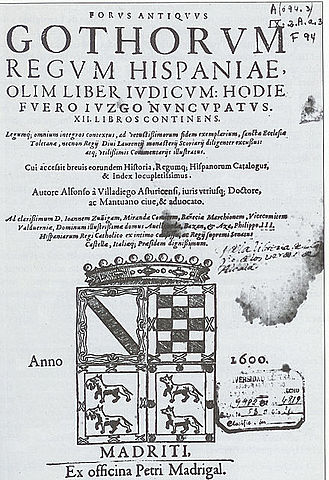 A (094.3)
IX. 2. A. a. 3
F 94
FORUS ANTIQVVS
GOTHORVM
REGVM HISPANIAE,
OLIM LIBER IVDICVM: HODIE
FVERO IVZGO NVNCVPATVS.
XII. LIBROS CONTINENS.
Legumq; omnium integros contextus, ad vetustissimorum fidem exemplarium, sanctæ Ecclesiæ
Toletanæ, necnon Regij Diui Laurentij monasterij Scoriacij diligenter excussus:
atq; vtilissimis Commentarijs illustratus.
Cui accessit breuis eorundem Historia, Regumq; Hispanorum Catalogus,
& Index locupletissimus.
Autore Alfonso à Villadiego Asturicensi, iuris vtriusq; Doctore,
ac Mantuano ciue, & aduocato.
Ad clarissimum D. Ioannem Zuñigam, Miranda Comitem, Bañecia Marchionem, Vicecomitem
Valduerniæ, Dominum illustrissimæ domus Auellaneda, Bazan, & Aza, Philippo III.
Hispaniarum Regi Catholico ex intimo consilio, ac Regij supremi Senatus
Castellæ, Italiæq; Præsidem dignissimum.
Anno
1600.
MADRITI,
Ex officina Petri Madrigal.